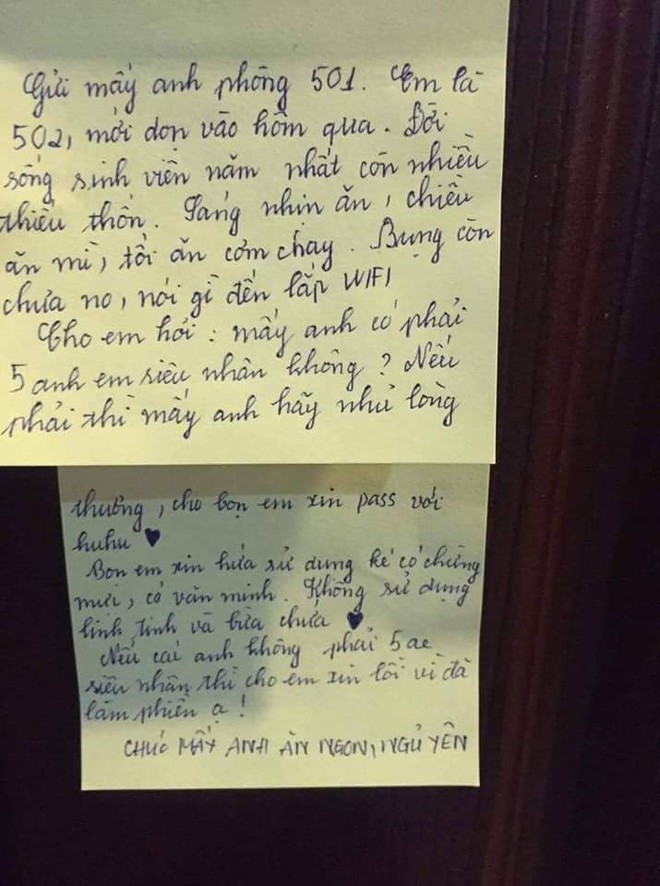 Gửi mấy anh phòng 501. Em là
502, mới dọn vào hôm qua. Đời
sống sinh viên năm nhất còn nhiều
thiếu thốn. Sáng nhịn ăn, chiều
ăn mì, tối ăn cơm cháy. Bụng còn
chưa no, nói gì đến lắp WIFI
Cho em hỏi: mấy anh có phải
5 anh em siêu nhân không? Nếu
phải thì mấy anh hãy nhủ lòng
thương, cho bọn em xin pass với
huhu ♥
Bọn em xin hứa sử dụng ké có chừng
mực, có văn minh. Không sử dụng
linh tinh và bừa chứa ♥
Nếu các anh không phải 5 ae
siêu nhân thì cho em xin lỗi vì đã
làm phiền ạ!
CHÚC MẤY ANH ĂN NGON, NGỦ YÊN